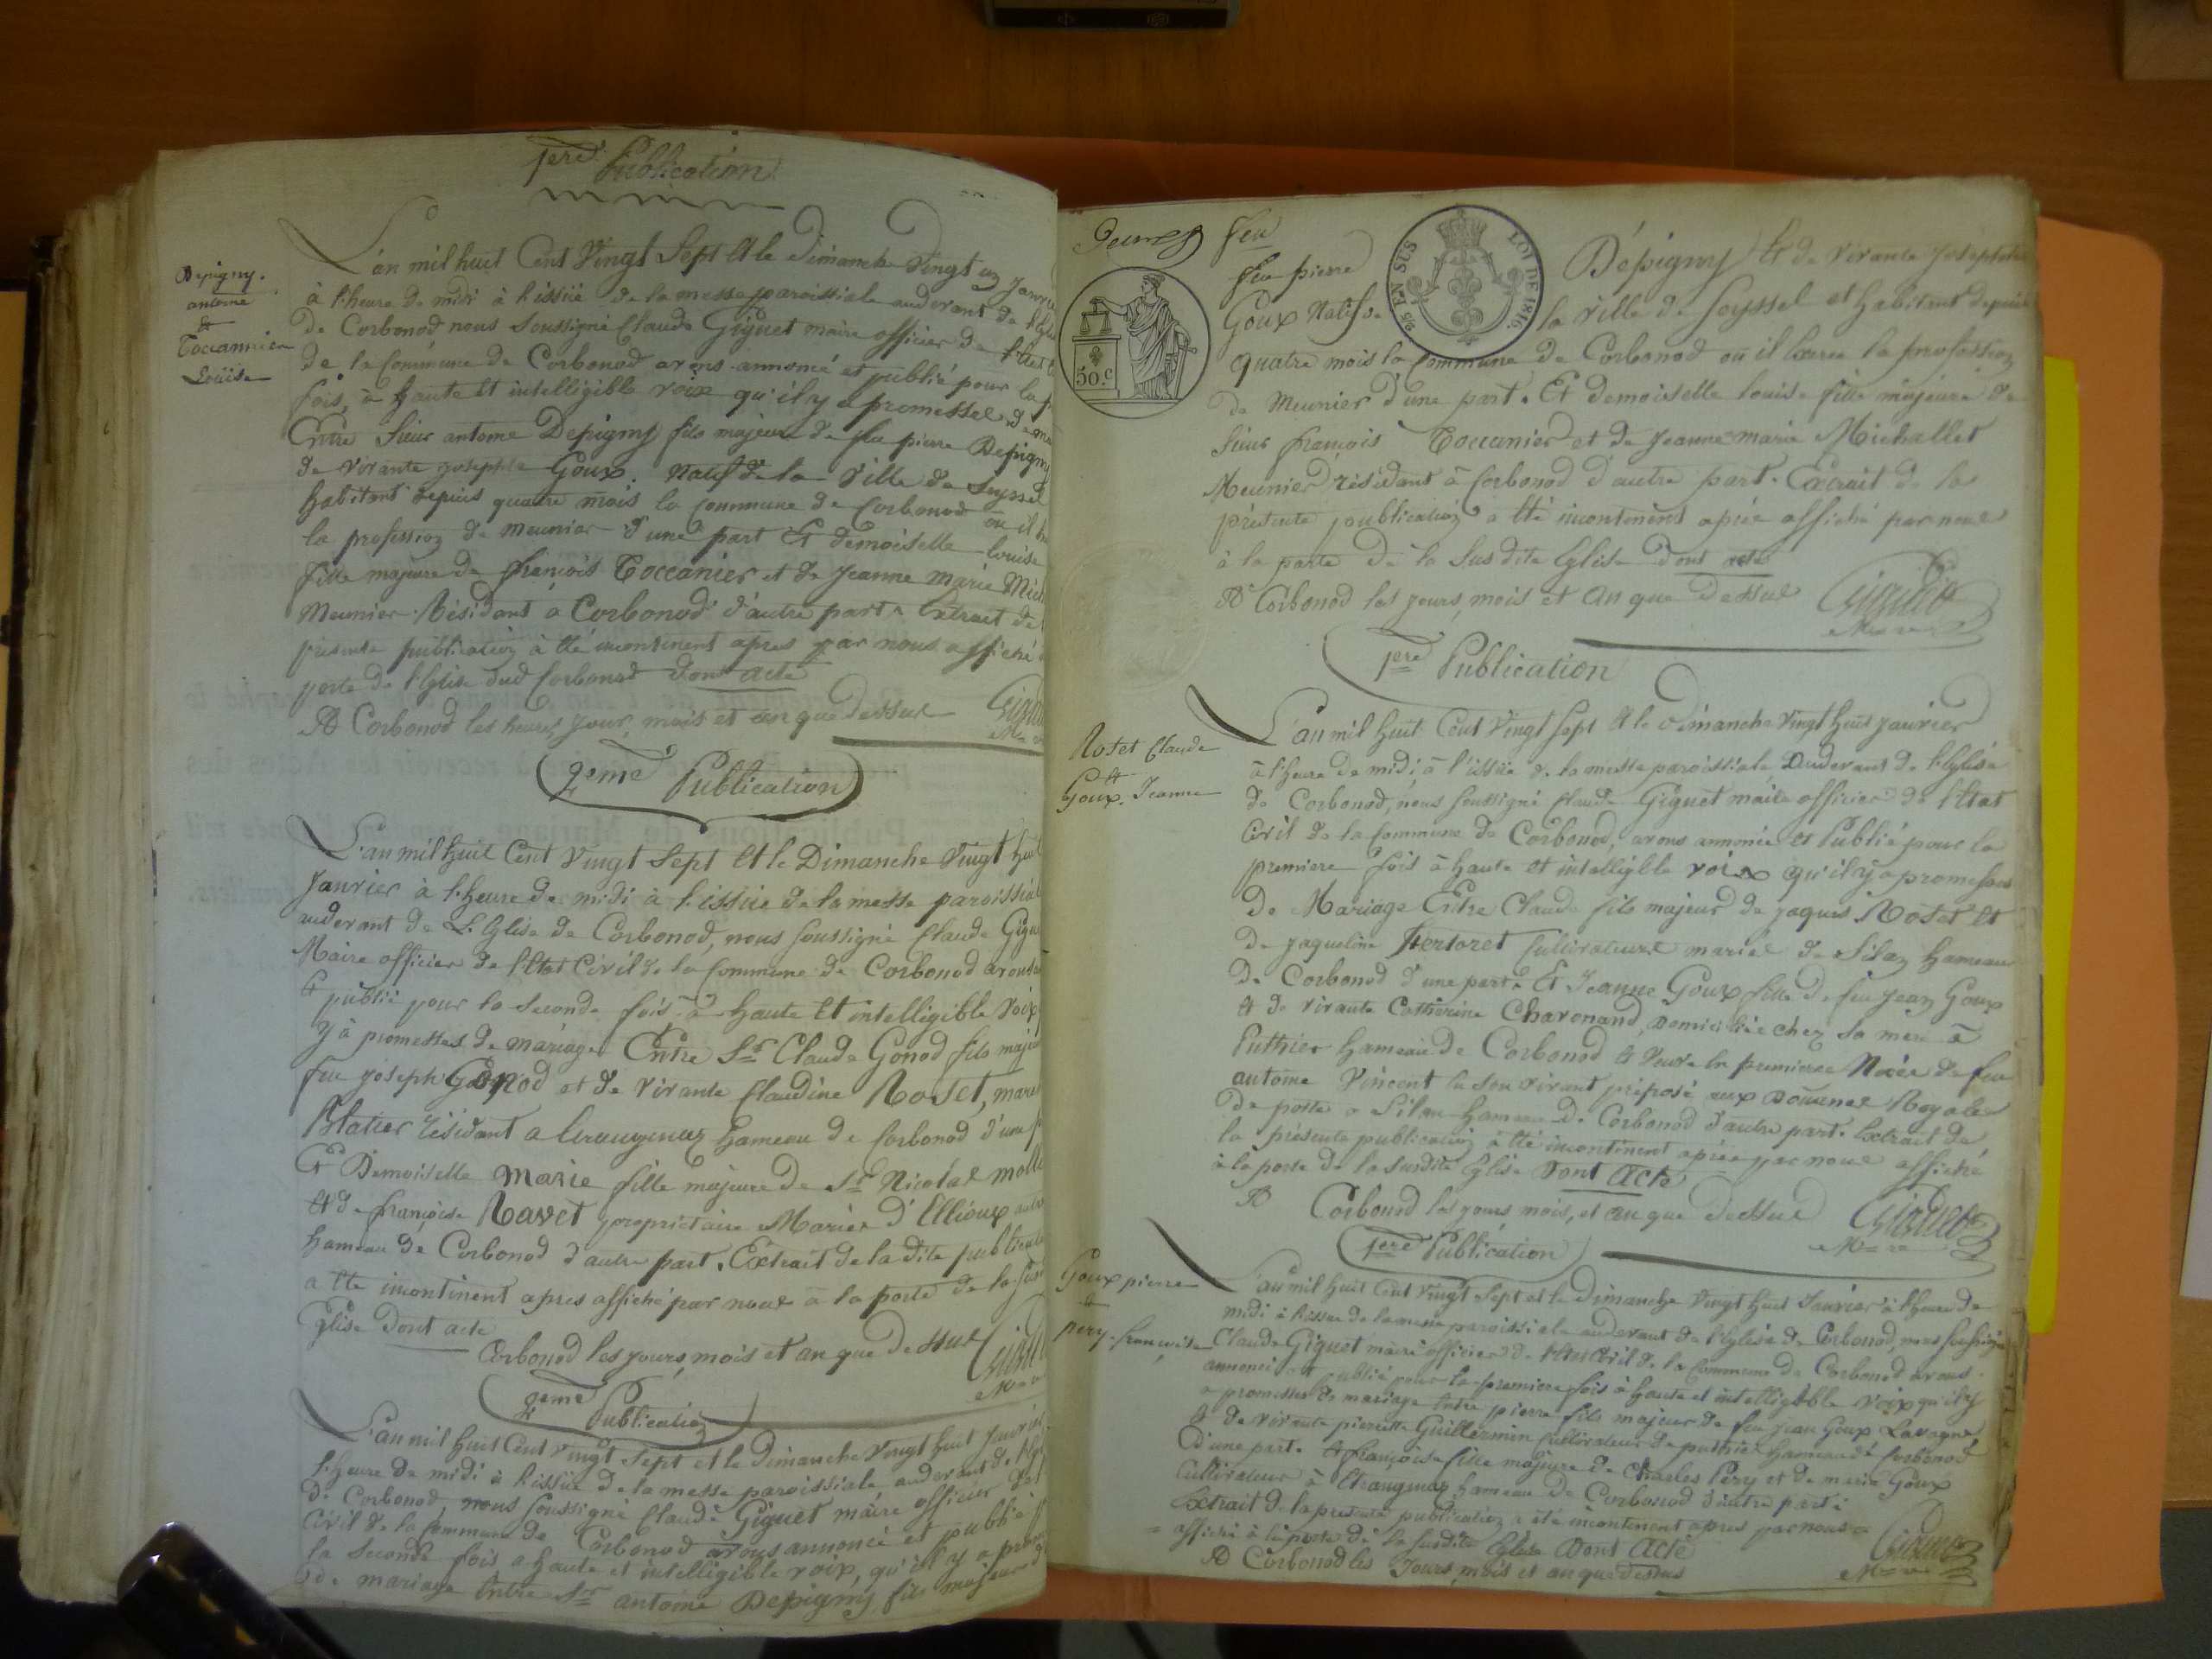 1ere Publication
Depigny
antoine
&
Toccannier
Louise
L'an mil huit Cent Vingt Sept et le Dimanche Vingt un Janvie
à l'heure de midi à l'issüe de la messe paroissiale audevant de l'Egli
de Corbonod nous Soussigné Claude Giguet maire officier de l'Etat C
de la Commune de Corbonod avons annoncé et publié pour la p
fois, à haute et intelligible voix qu'il y a promesses de ma
Entre Sieur antoine Depigny fils majeur de feu pierre Depigny
de vivante josephte Goux. natif de la Ville de Seyssel
habitant depuis quatre mois la commune de Corbonod ou il
la profession de meunier d'une part Et demoiselle louise
fille majeure de françois Toccanier et de jeanne marie Mich
Meunier Résidant a Corbonod d'autre part. Extrait de
présente publication à été incontinent apres par nous affiché
porte de l'Eglise dud Corbonod Dont acte
A Corbonod les heures, jour, mois et an que dessus
2eme Publication
L'an mil huit Cent Vingt Sept et le Dimanche Vingt huit
Janvier à l'heure de midi à l'issüe de la messe paroissial
audevant de L'Eglise de Corbonod, nous soussigné Claude Gigu
Maire officier de l'Etat Civil de la Commune de Corbonod avons
et publié pour la Seconde fois à haute et intelligible voix
y à promesses de mariage Entre Sr Claude Gonod fils maje
feu joseph Gonod et de vivante Claudine Roset,
résidant a hameau de Corbonod d'une p
Et Demoiselle Marie fille majeure de Sr Nicolas
et de françoise Ravet propriétaire d'Ellioux
hameau de Corbonod d'autre part. Extrait de la dite publicati
a été incontinent apres affiché par nous a la porte de la
Eglise Dont acte
Corbonod les jours, mois et an que dessus
2eme Publication
L'an mil huit Cent vingt Sept et le Dimanche Vingt huit Janvier
l'heure de midi à l'issüe de la messe paroissiale audevant de l'Egl
de Corbonod, nous soussigné Claude Giguet maire officier de
Civil de la Commune de Corbonod avons annoncé et publié
la Seconde fois a haute et intelligible voix, qu'il y a prome
de mariage Entre Sr antoine Depigny fils majeur d
feu
50.c
9/5 EN SUS LOI DE 1816.
feu pierre Dépigny Et de vivante Josephte
Goux Natif de la ville de Seyssel et habitant depuis
quatre mois la Commune de Corbonod où il Exerce la profession
de Meunier d'une part. Et demoiselle louise fille majeure de
Sieur françois Toccanier et de Jeanne marie Michallet
Meunier résidant à Corbonod d'autre part. Extrait de la
présente publication a été incontinent apres affiché par nous
à la porte de la Susdite Eglise Dont acte
A Corbonod les jours, mois et an que Dessus
Giguet
1ere Publication
Roset Claude
et
Goux. Jeanne
L'an mil huit Cent Vingt Sept et le Dimanche Vingt huit janvier
à l'heure de midi, à l'issüe de la messe paroissiale Audevant de l'Eglise
de Corbonod, nous soussigné Claude Giguet maire officier de l'Etat
Civil de la Commune de Corbonod, avons annoncé et Publié pour la
premiere fois à haute et intelligible voix qu'il y a promesses
de Mariage Entre Claude fils majeur de jaques Roset et
de jaqueline Cultivateurs mariés de Silan hameau
de Corbonod d'une part. Et Jeanne Goux fille de feu jean Goux
et de vivante Catherine Charonand, Domiciliée chez sa mere à
Puthier hameau de Corbonod et Veuve en premieres Noces de feu
antoine Vincent en son vivant préposé aux Douanes Royales
de poste a Silan hameau de Corbonod d'autre part. Extrait de
la présente publication à été incontinent apres par nous affiché
à la porte de la susdite Eglise Dont Acte
A Corbonod les jours mois, et an que dessus
Giguet
1ere Publication
Goux pierre
&
pery. françoise
L'an mil huit Cent vingt Sept et le Dimanche Vingt huit Janvier à l'heure de
midi à l'issue de la messe paroissiale audevant de l'Eglise de Corbonod, nous soussigné
Claude Giguet maire officier de l'Etat Civil de la Commune de Corbonod avons
annoncé et publié pour la premiere fois à haute et intelligible voix qu'il y
a promesses de mariage Entre pierre fils majeur de feu Jean Goux Lavagne
& de vivante pierrette Guillermin Cultivateur de puthier hameau de Corbonod
d'une part. Et françoise fille majeure de Charles Pery et de marie Goux
Cultivateur à hameau de Corbonod d'autre part.
Extrait de la présente publication a été incontinent apres par nous
affiché à la porte de la susdite Eglise Dont Acte
A Corbonod les Jours, mois et an que dessus
Giguet